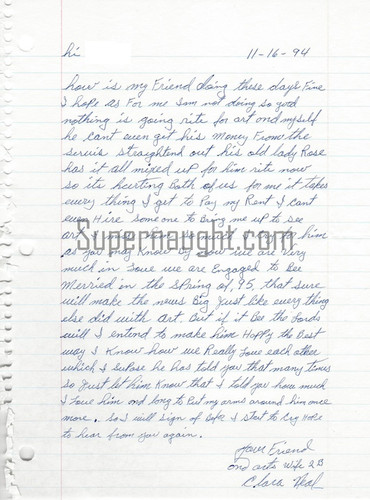 hi 11-16-94
how is my Friend doing these days Fine
I hope as For me I am not doing so good
nothing is going rite for art and myself
he cant even git his money From the
servis straightend out his old lady Rose
has it all mixed up for him rite now
so its hurting Both of us for me it takes
every thing I get to Pay my Rent I cant
even Hire some one to Bring me up to see
art to him
Supernaught.com
as you may Know by now we are very
much in Love we are Engaged to Bee
Merried in the SPring of, 95, that sure
will make the news Big Just like every thing
else did with Art But if it Bee the Lords
will I intend to make him Happy the Best
way I Know how we Really Love each other
which I supose he has told you that many times
so Just let him Know that I told you how much
I Love him and long to Put my arms around him once
more. so I will sign of Before I start to Cry Hope
to hear from you again.
Love Friend
and arts Wife 2 B
Clara Neal